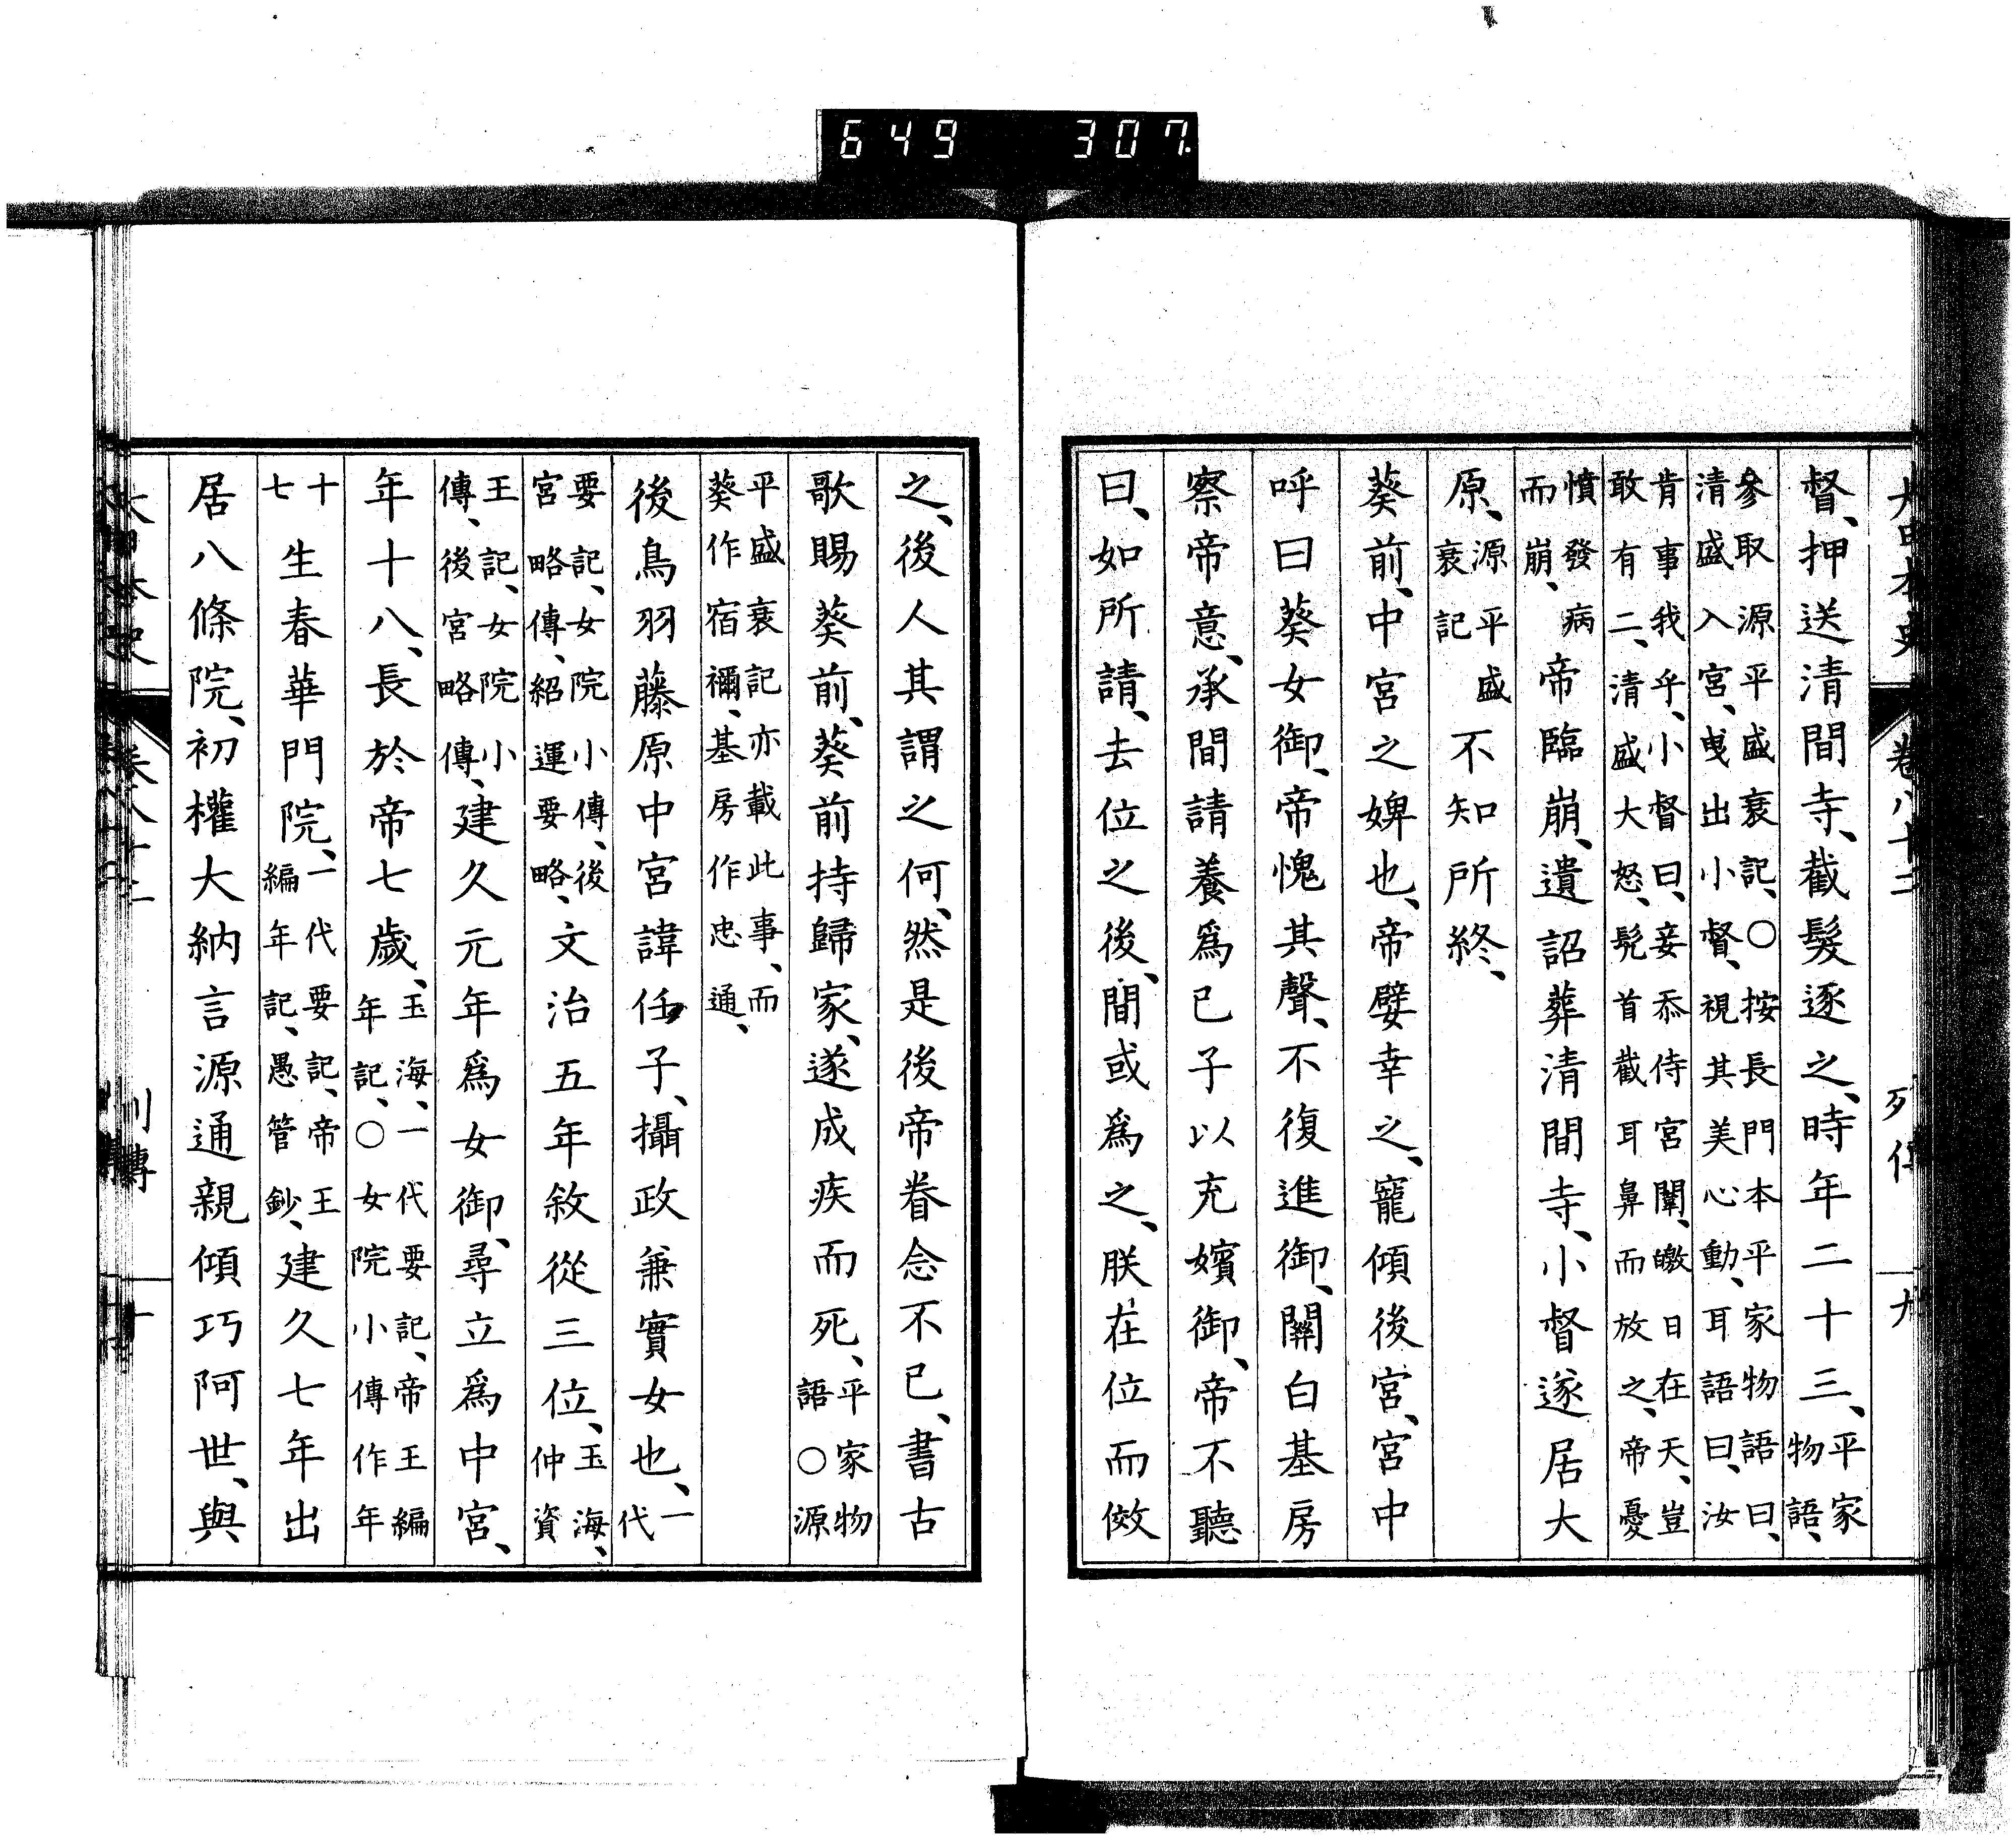 大日本史 卷八十二 列傳 九
督、押送清間寺、截髮逐之、時年二十三、平家物語、
參取源平盛衰記、○按長門本平家物語曰、
清盛入宮、曳出小督、視其美心動、耳語曰、汝
肯事我乎、小督曰、妾忝侍宮闈、皦日在天、豈
敢有二、清盛大怒、髡首截耳鼻而放之、帝憂
憤發病而崩、帝臨崩、遺詔葬清間寺、小督遂居大
原、源平盛衰記不知所終、
葵前、中宮之婢也、帝嬖幸之、寵傾後宮、宮中
呼曰葵女御、帝愧其聲、不復進御、關白基房
察帝意、承間請養爲已子以充嬪御、帝不聽
曰、如所請、去位之後、間或爲之、朕在位而倣
之、後人其謂之何、然是後帝眷念不已、書古
歌賜葵前、葵前持歸家、遂成疾而死、平家物語○源
平盛衰記亦載此事、而
葵作宿禰、基房作忠通、
後鳥羽藤原中宮諱任子、攝政兼實女也、一代
要記、女院小傳、後
宮略傳、紹運要略、文治五年敘從三位、玉海、仲資
王記、女院小
傳、後宮略傳、建久元年爲女御、尋立爲中宮、
年十八、長於帝七歲、玉海、一代要記、帝王編年記、○女院小傳作年
十七生春華門院、一代要記、帝王編年記、愚管鈔、建久七年出
居八條院、初權大納言源通親傾巧阿世、與
大日本史 卷八十二 列傳 十